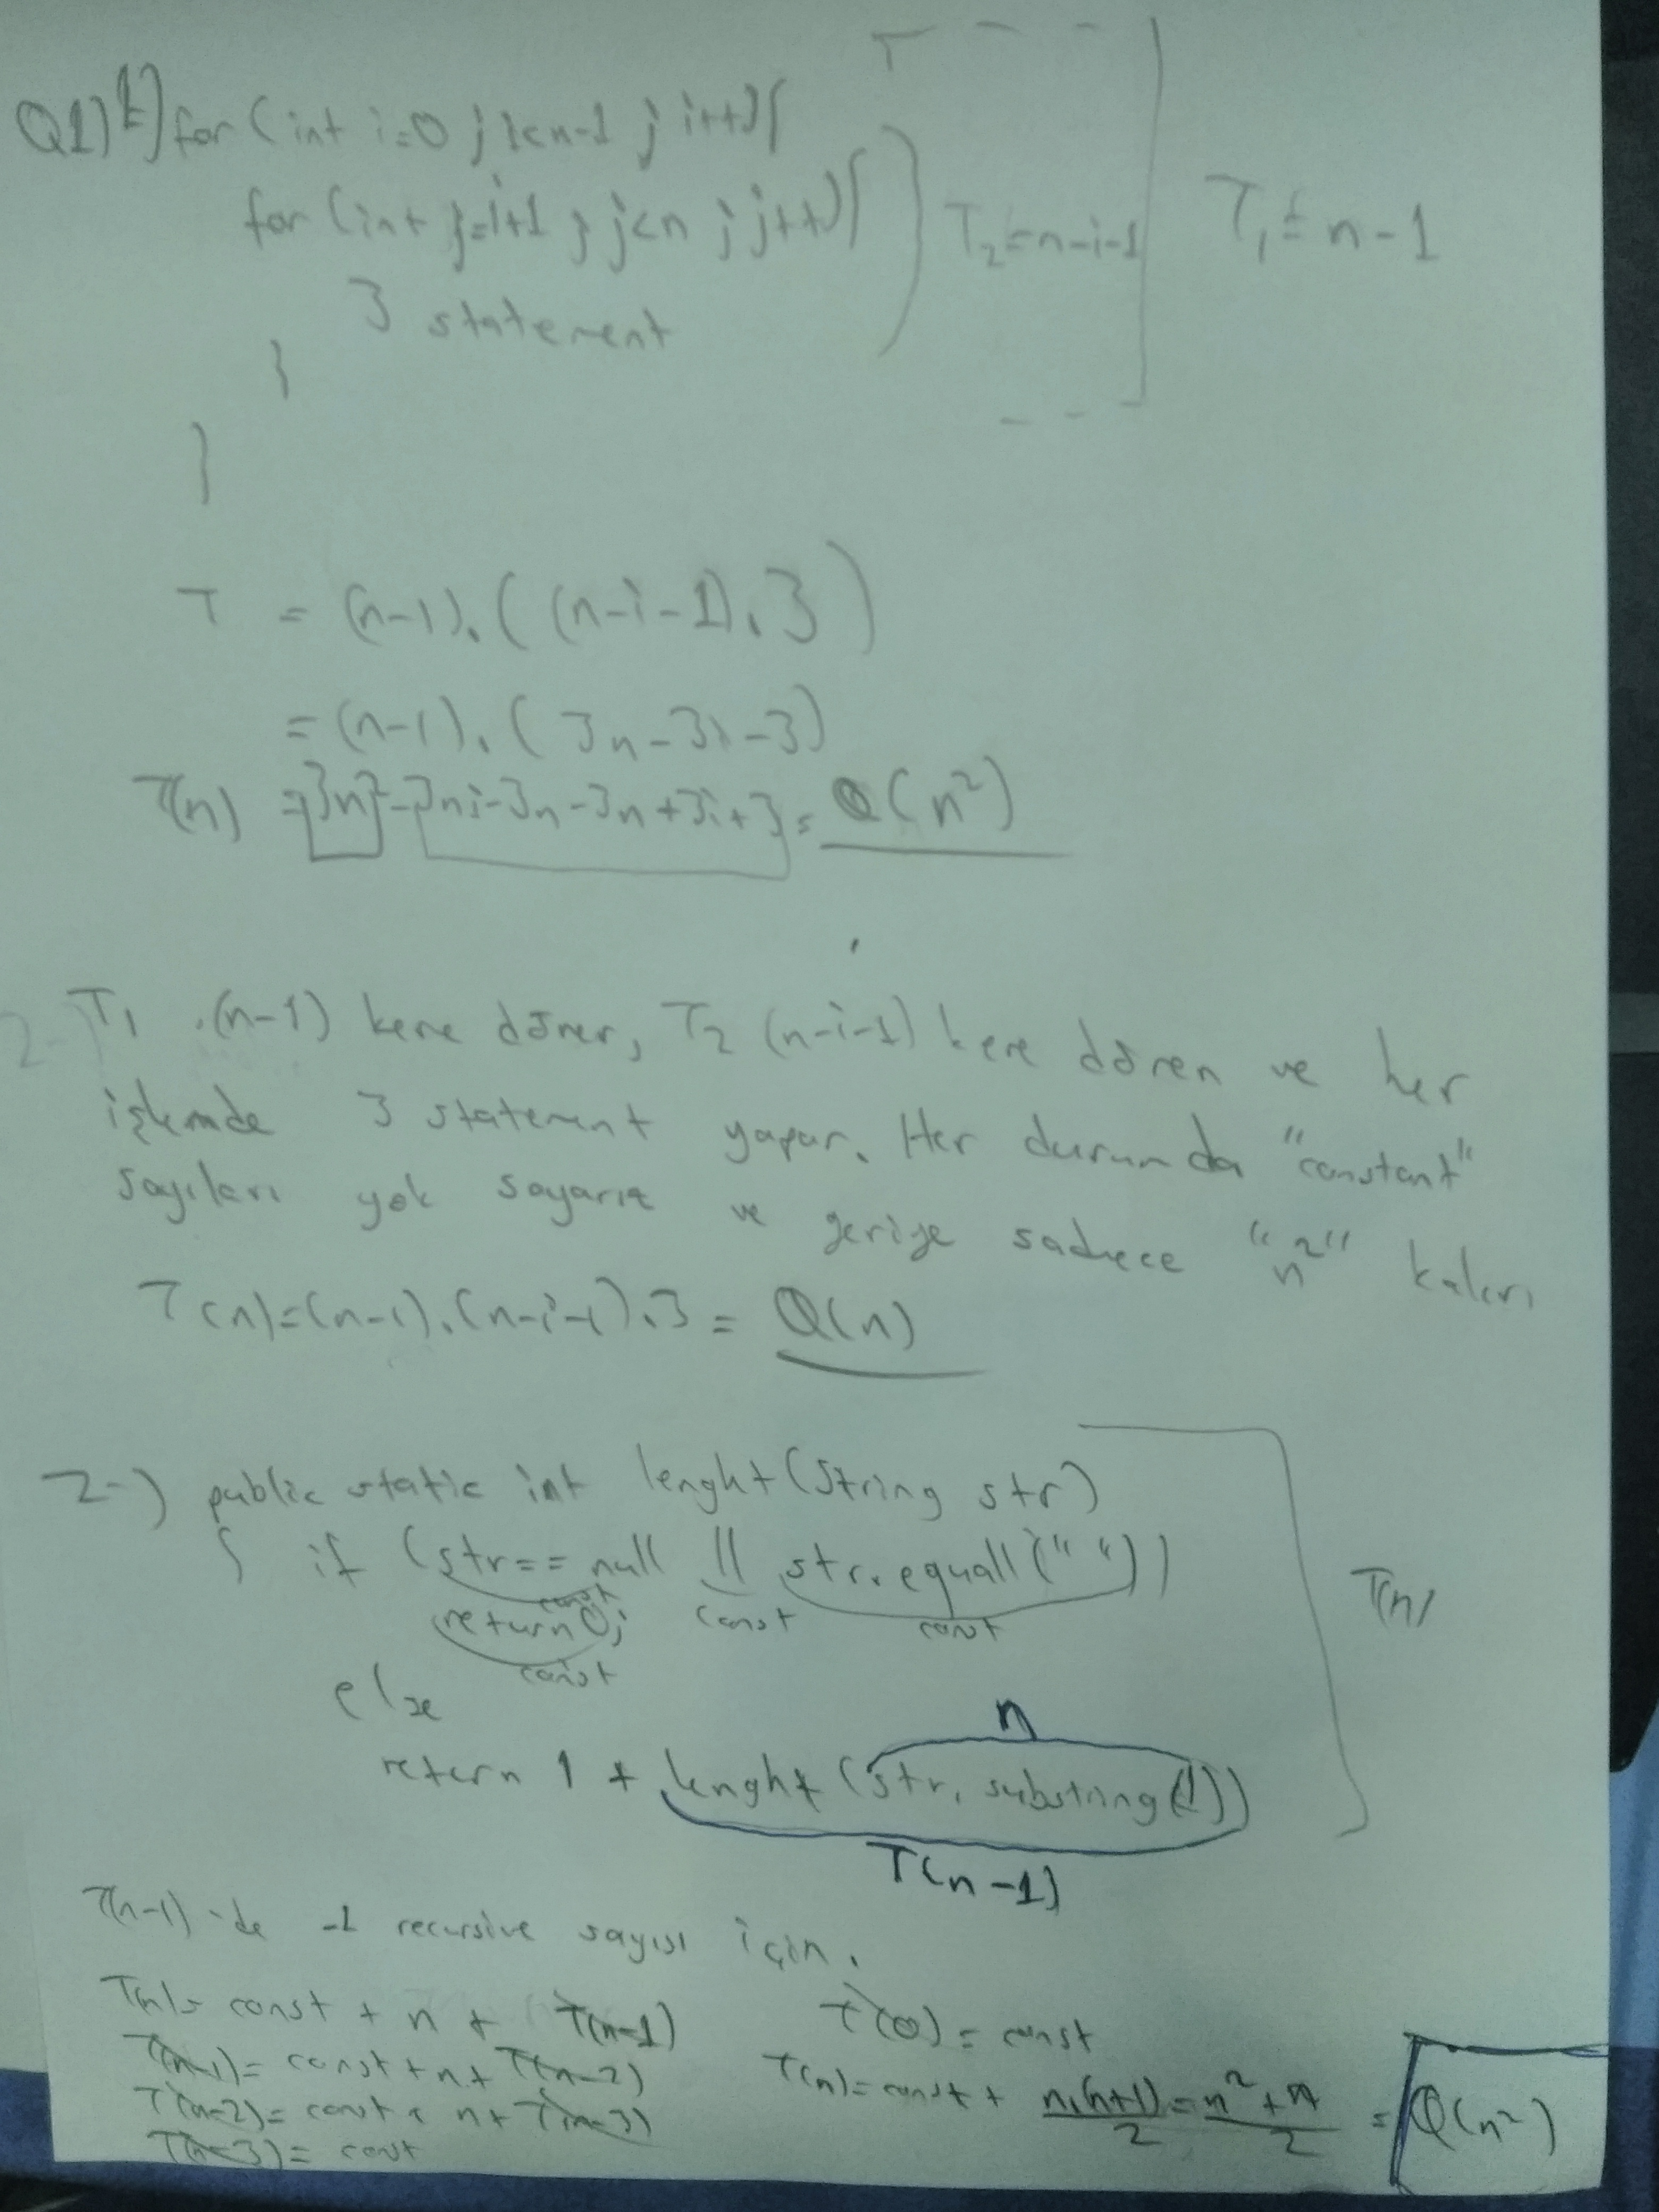 Q1) 1) for (int i=0 ; i<n-1 ; i++){
for (int j=i+1 ; j<n ; j++){
3 statement
}
}
T₂ = n-i-1
T₁ = n-1
T = (n-1).((n-i-1).3)
= (n-1).(3n-3i-3)
T(n) = 3n²-3ni-3n-3n+3i+3 = Θ(n²)
T₁ (n-1) kere döner, T₂ (n-i-1) kere döner ve her
işlemde 3 statement yapar. Her durumda "constant"
sayıları yok sayarız ve geriye sadece "n²" kalır
T(n)=(n-1).(n-i-1).3 = Θ(n)
2-) public static int lenght(String str)
{ if (str== null || str.equall(" "))
const const const
return 0;
const
T(n)
else
n
return 1 + lenght (str. substring(1))
T(n-1)
T(n-1)-de -1 recursive sayısı için.
T(n)= const + n + T(n-1)
T(n-1)= const + n + T(n-2)
T(n-2)= const + n + T(n-3)
T(n-3)= const
T(0) = const
T(n)= const + n.(n+1)/2 = n²+n/2 = Θ(n²)